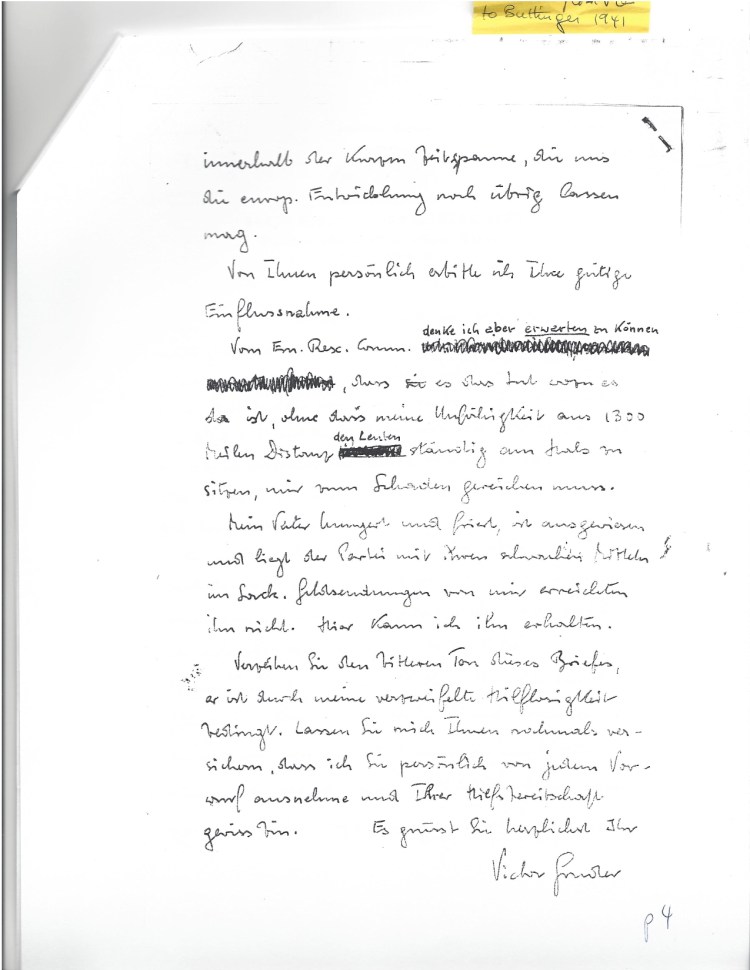 to Buttinger 1941
innerhalb der kurzen Zeitspanne, die uns
die europ. Entwicklung noch übrig lassen
mag.
Von Ihnen persönlich erbitte ich Ihre gütige
Einflussnahme.
denke ich aber erwarten zu können
Vom Em. Resc. Comm.
, dass es das tut wozu es
da ist, ohne dass meine Unfähigkeit aus 1300
den Leuten
Meilen Distanz ständig am Hals zu
sitzen, mir zum Schaden gereichen muss.
Mein Vater hungert und friert, ist ausgewiesen
und liegt der Partei mit ihren schwachen Mitteln
im Sack. Geldsendungen von mir erreichten
ihn nicht. Hier kann ich ihn erhalten.
Verzeihen Sie den bitteren Ton dieses Briefes,
er ist durch meine verzweifelte Hilflosigkeit
bedingt. Lassen Sie mich Ihnen nochmals ver-
sichern, dass ich Sie persönlich von jedem Vor-
wurf ausnehme und Ihrer Hilfsbereitschaft
gewiss bin. Es grüsst Sie herzlichst Ihr
Victor
p 4